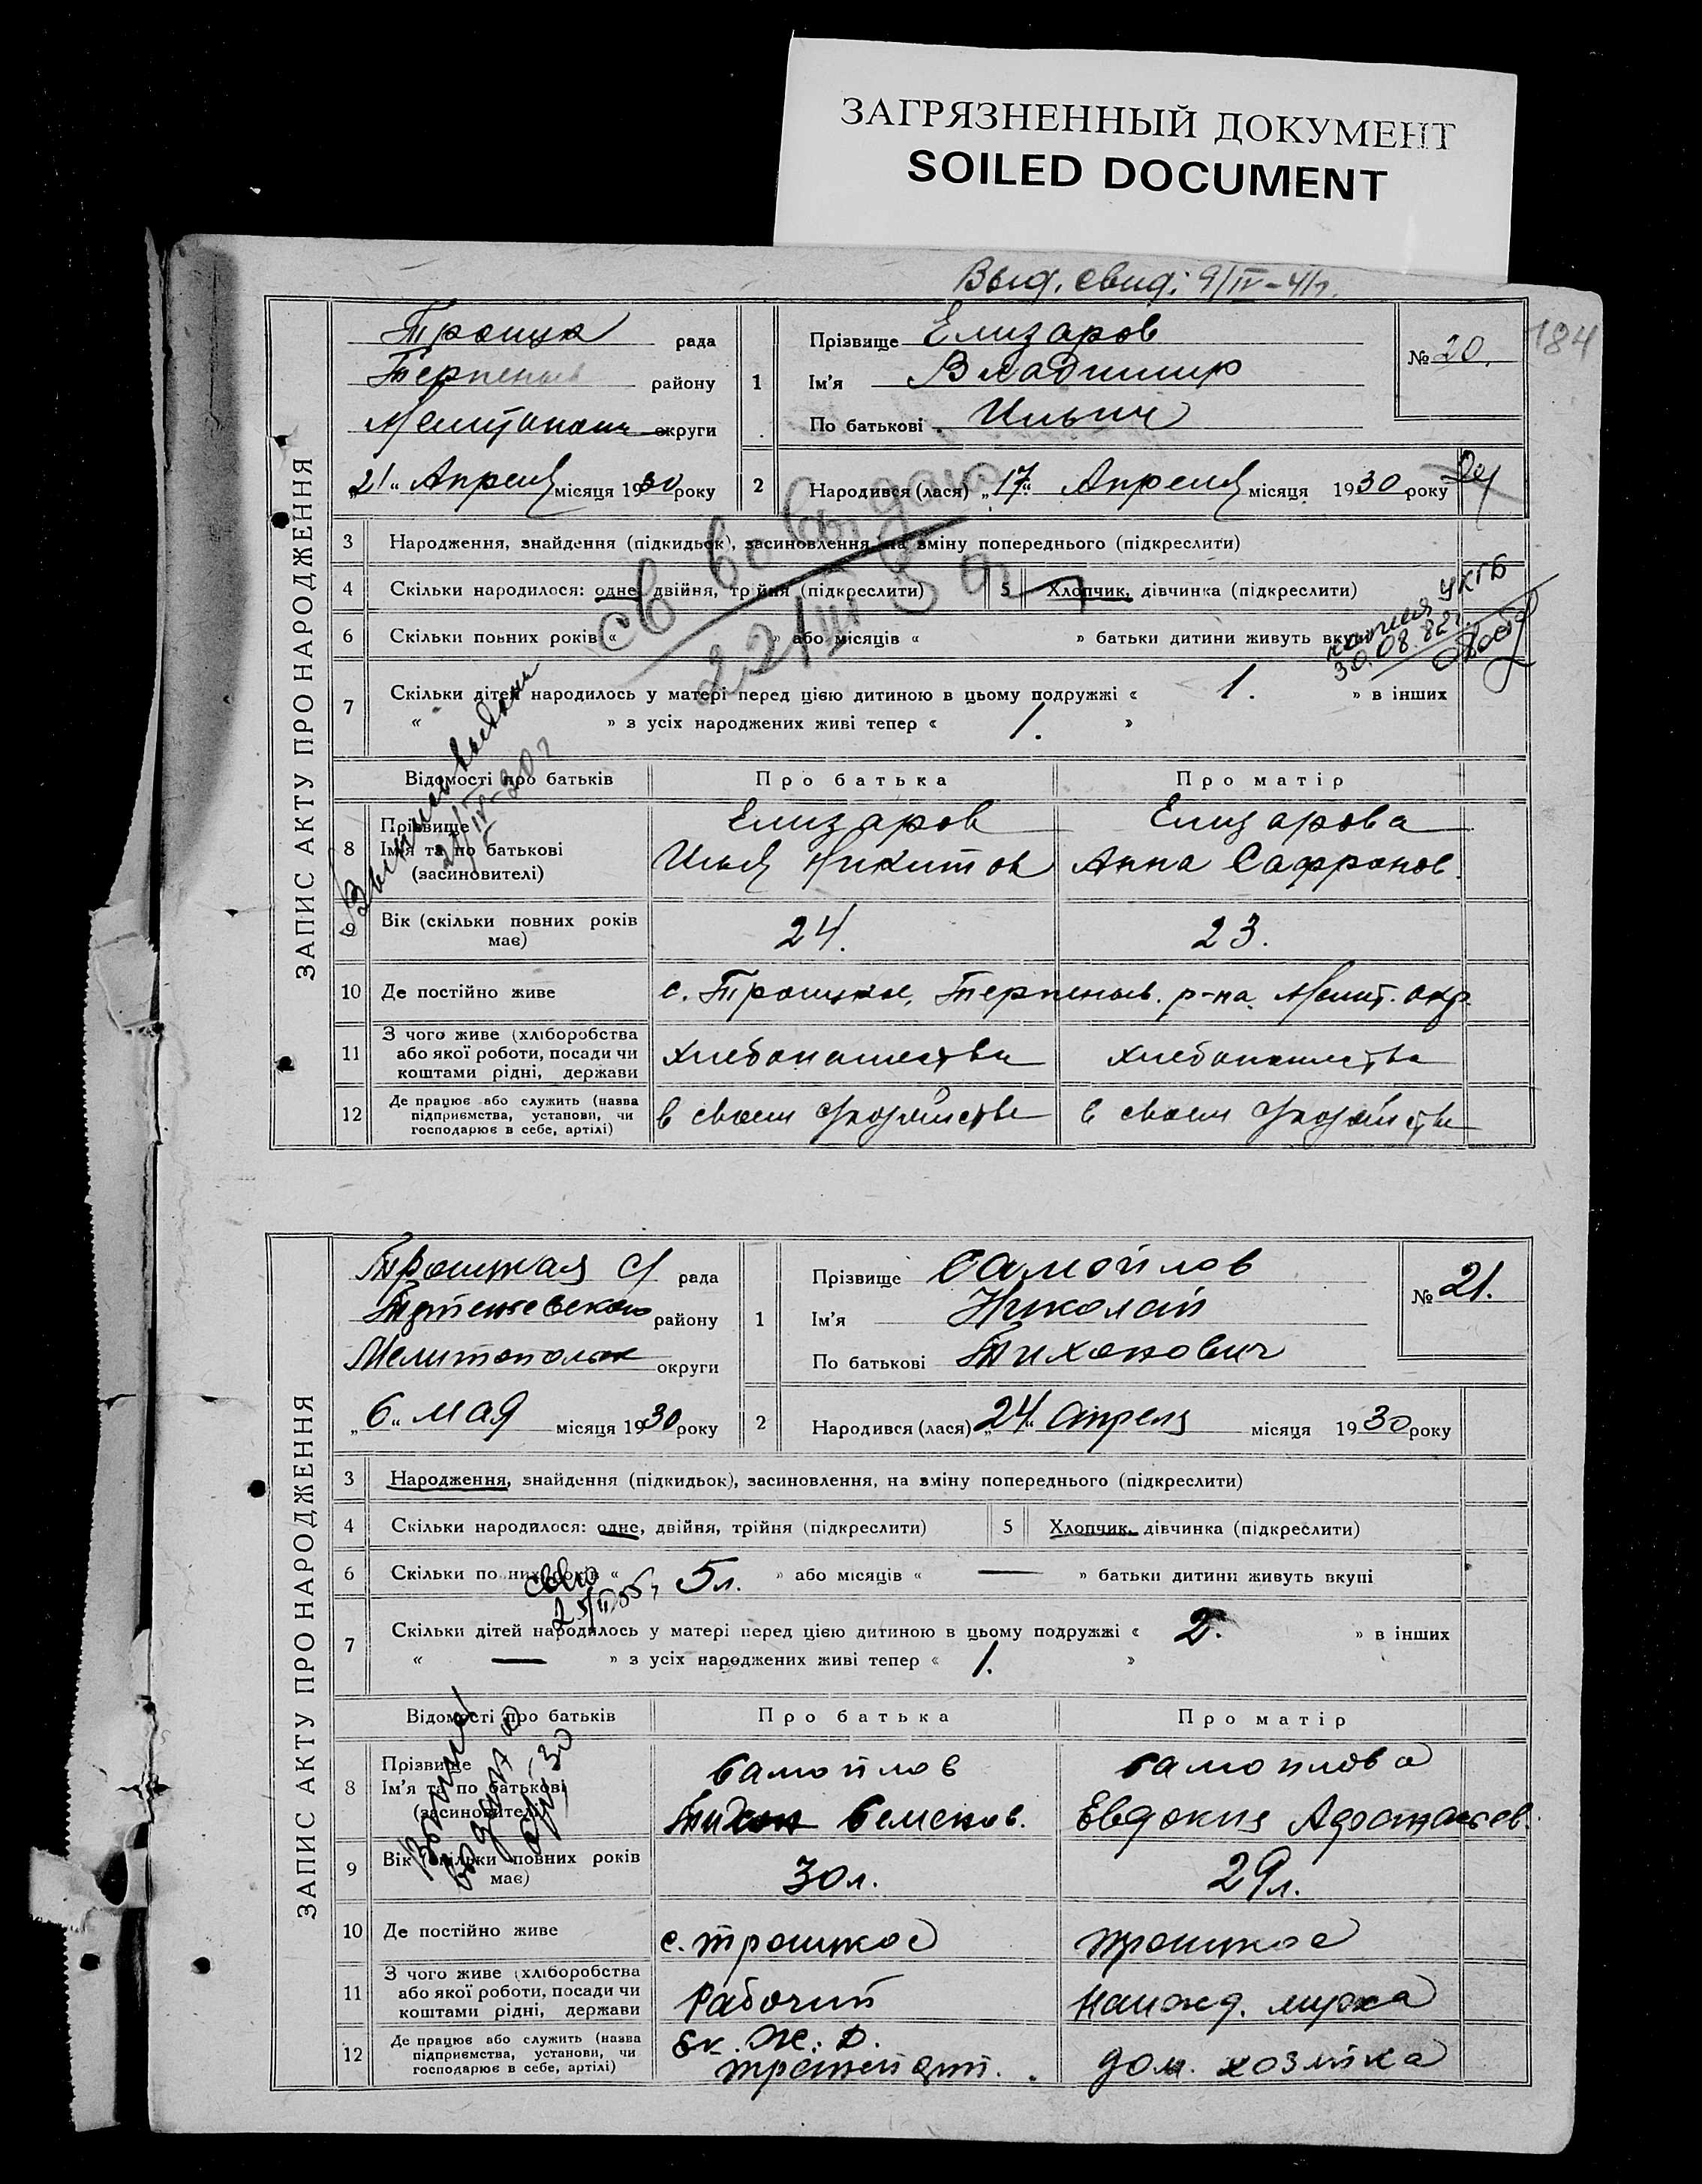 ЗАГРЯЗНЕННЫЙ ДОКУМЕНТ
SOILED DOCUMENT
Выд. свид. 9/IV-41г.
184
ЗАПИС АКТУ ПРО НАРОДЖЕННЯ
Троицк рада
Терпеньев району
Мелитопольск округи
„21“ Апреля місяця 1930 року
1 Прізвище Елизаров
Ім'я Владимир
По батькові Ильич
№ 20.
2 Народився (лася) „17“ Апреля місяця 1930 року
3 Народження, знайдення (підкидьок), засиновлення, на зміну попереднього (підкреслити)
4 Скільки народилося: одне, двійня, трійня (підкреслити) 5 Хлопчик, дівчинка (підкреслити)
6 Скільки повних років « » або місяців « » батьки дитини живуть вкупі
7 Скільки дітей народилось у матері перед цією дитиною в цьому подружжі « 1. » в інших
« » з усіх народжених живі тепер « 1. »
30.08.82г.
Відомості про батьків Про батька Про матір
8 Прізвище Елизаров Елизарова
Ім'я та по батькові Илья Никитов Анна Сафронов.
(засиновителі)
9 Вік (скільки повних років має) 24. 23.
10 Де постійно живе с. Троицкое, Терпеньев. р-на. Мелит. окр.
11 З чого живе (хліборобства або якої роботи, посади чи коштами рідні, держави хлебопашества хлебопашества
12 Де працює або служить (назва підприємства, установи, чи господарює в себе, артілі) в своем хозяйстве в своем хозяйстве
ЗАПИС АКТУ ПРО НАРОДЖЕННЯ
Троицкая с/ рада
Терпеньевского району
Мелитопольск округи
„6“ мая місяця 1930 року
1 Прізвище Самойлов
Ім'я Николай
По батькові Тихонович
№ 21.
2 Народився (лася) „24“ апреля місяця 1930 року
3 Народження, знайдення (підкидьок), засиновлення, на зміну попереднього (підкреслити)
4 Скільки народилося: одне, двійня, трійня (підкреслити) 5 Хлопчик, дівчинка (підкреслити)
6 Скільки повних років « 5 л. » або місяців « — » батьки дитини живуть вкупі
7 Скільки дітей народилось у матері перед цією дитиною в цьому подружжі « 2. » в інших
« — » з усіх народжених живі тепер « 1. »
Відомості про батьків Про батька Про матір
8 Прізвище Самойлов Самойлова
Ім'я та по батькові Тихон Семенов. Евдокия
(засиновителі)
9 Вік (скільки повних років має) 30 л. 29 л.
10 Де постійно живе с. троицкое троицкое
11 З чого живе (хліборобства або якої роботи, посади чи коштами рідні, держави Рабочий На ижд. мужа
12 Де працює або служить (назва підприємства, установи, чи господарює в себе, артілі) Ек. Ж. Д. дом. хозяйка